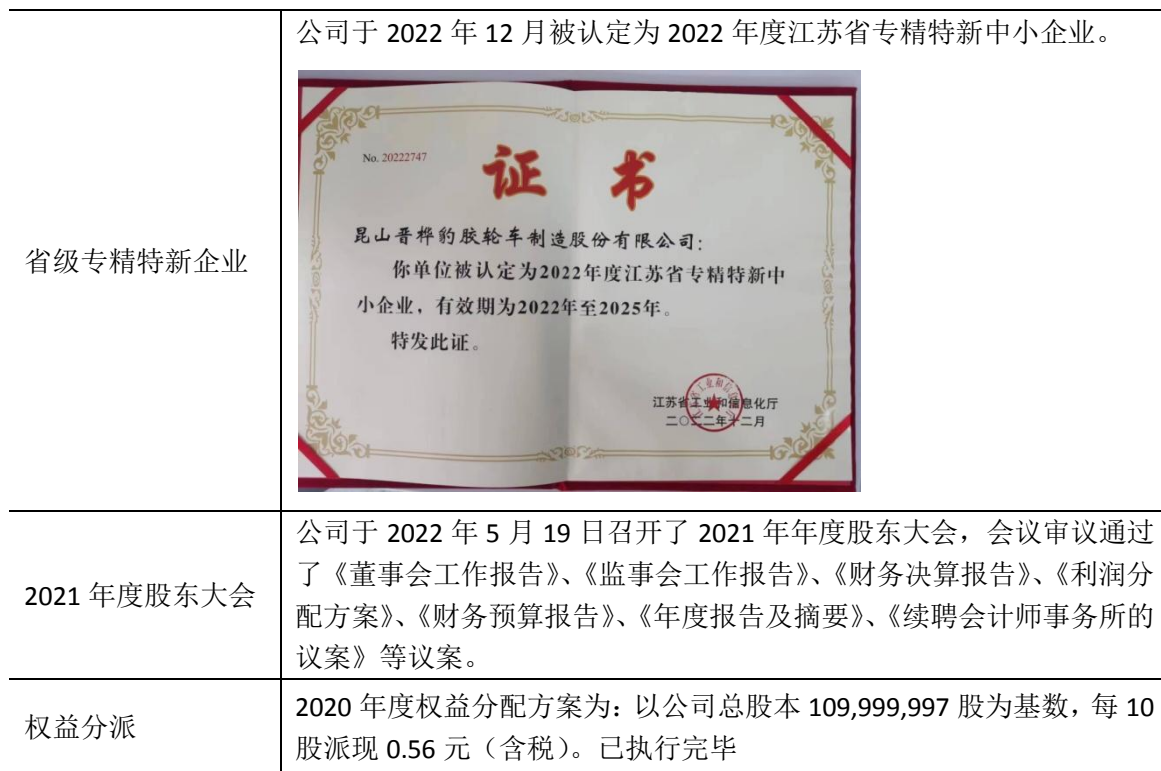 公司于 2022 年 12 月被认定为 2022 年度江苏省专精特新中小企业。
省级专精特新企业
No. 20222747
证 书
昆山晋桦豹胶轮车制造股份有限公司:
你单位被认定为2022年度江苏省专精特新中
小企业，有效期为2022年至2025年。
特发此证。
江苏省工业和信息化厅
二〇二二年十二月
2021 年度股东大会
公司于 2022 年 5 月 19 日召开了 2021 年年度股东大会，会议审议通过
了《董事会工作报告》、《监事会工作报告》、《财务决算报告》、《利润分
配方案》、《财务预算报告》、《年度报告及摘要》、《续聘会计师事务所的
议案》等议案。
权益分派
2020 年度权益分配方案为：以公司总股本 109,999,997 股为基数，每 10
股派现 0.56 元（含税）。已执行完毕